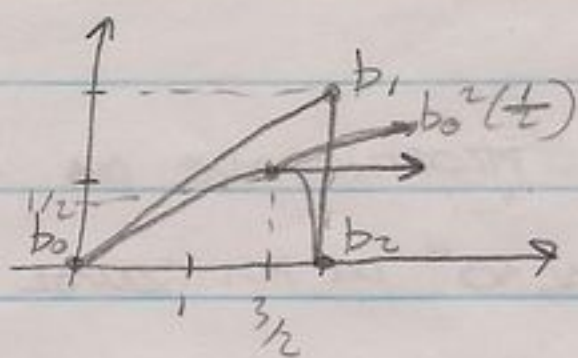 b₁
b₀²(½)
1/2
b₀
b₂
1
3/2